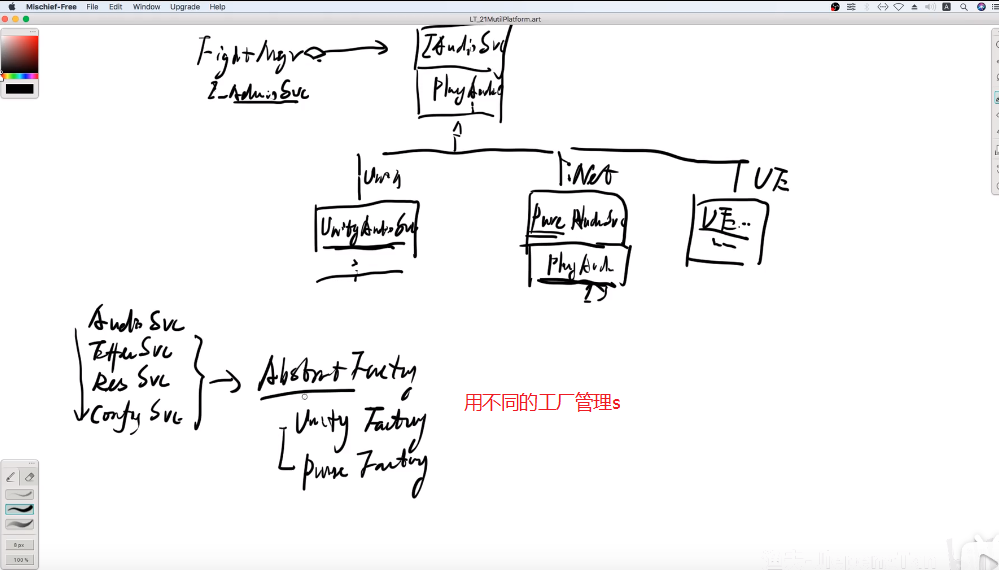 Mischief-Free File Edit Window Upgrade Help
LT_21MutilPlatform.art
FightMgr
IAudioSvc
I_AudioSvc
PlayAudio
Unity
.Net
UE
UnityAudioSvc
Pure AudioSvc
UE...
PlayAudi
AudioSvc
EffectSvc
Res Svc
Config Svc
Abstract Factory
Unity Factory
Pure Factory
用不同的工厂管理s
8px
100%